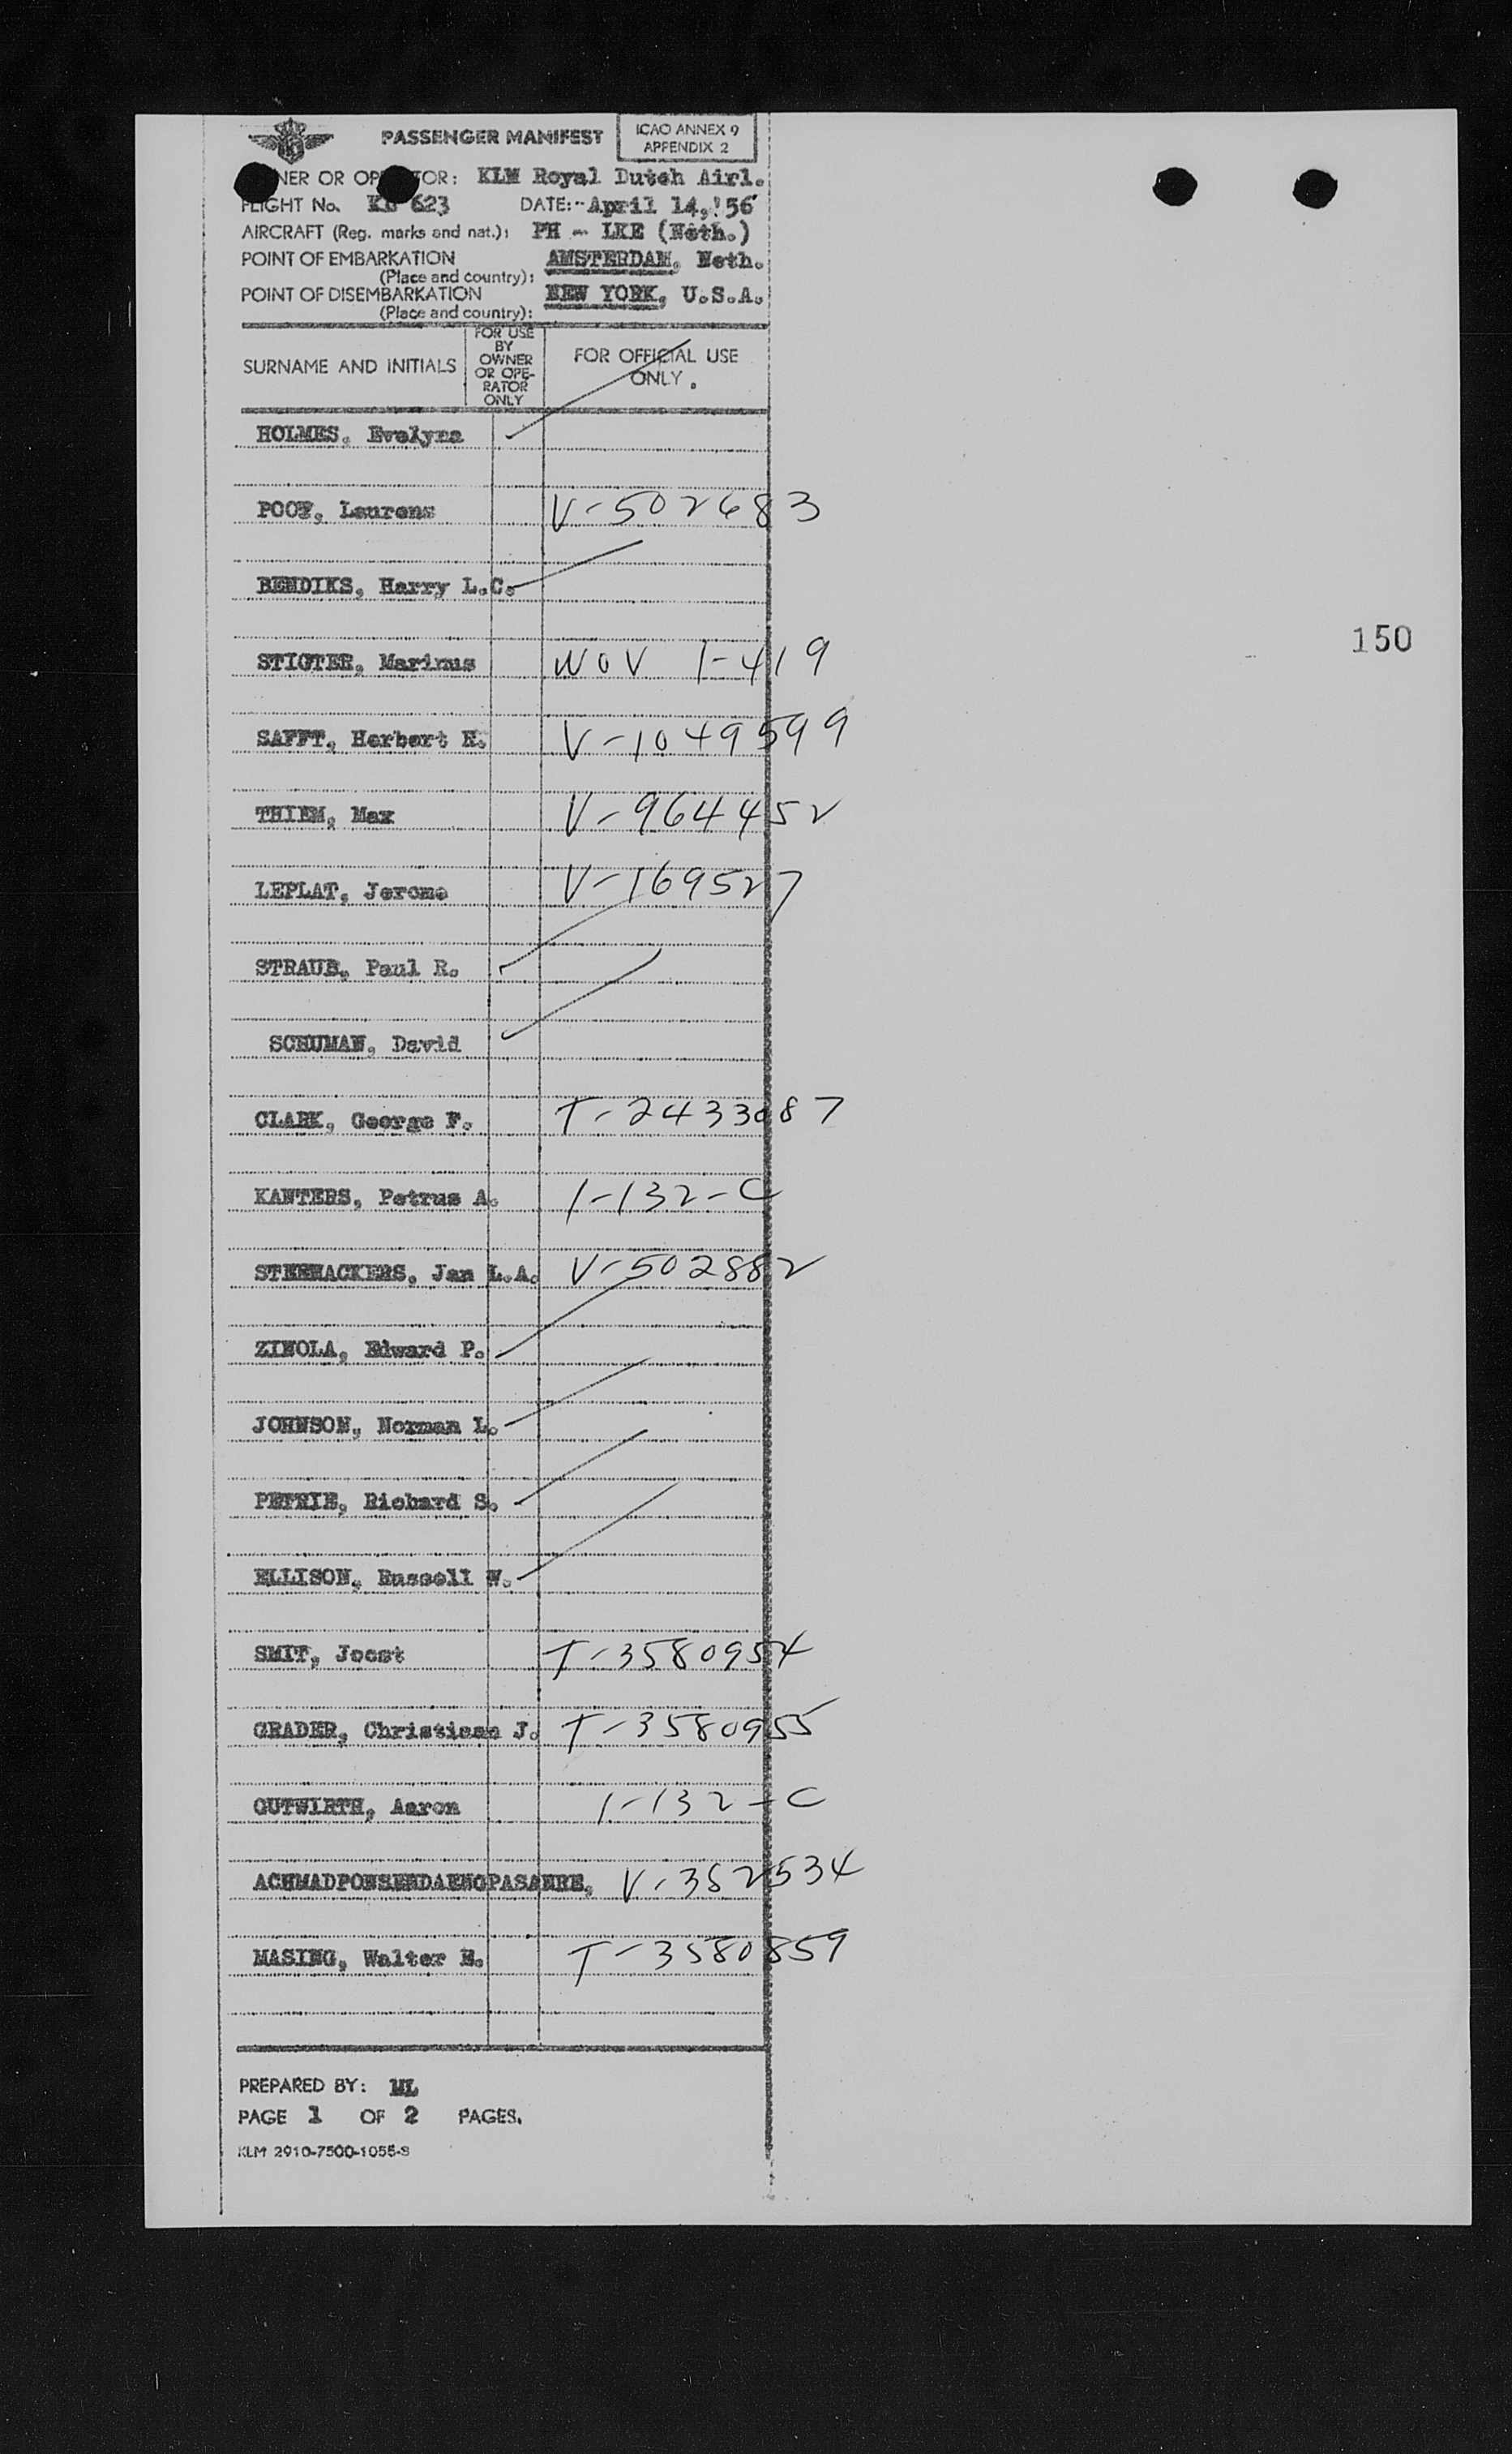 PASSENGER MANIFEST
ICAO ANNEX 9
APPENDIX 2
NER OR OP TOR: KLM Royal Dutch Airl.
FLIGHT No. KL 623 DATE:-April 14,'56
AIRCRAFT (Reg. marks and nat.): PH - LKE (Neth.)
POINT OF EMBARKATION AMSTERDAM, Neth.
(Place and country):
POINT OF DISEMBARKATION NEW YORK, U.S.A.
(Place and country):
SURNAME AND INITIALS
FOR USE
BY
OWNER
OR OPE-
RATOR
ONLY
FOR OFFICIAL USE
ONLY.
HOLMES, Evelyna
POOT, Laurens V-502683
BENDIKS, Harry L.C.
STIGTER, Marinus WOV 1-419
SAFFT, Herbert H. V-1049599
THIEM, Max V-964452
LEPLAT, Jerome V-169527
STRAUB, Paul R.
SCHUMAN, David
CLARK, George F. T-2433087
KANTERS, Petrus A. 1-132-C
Jan L.A. V-502882
ZINOLA, Edward P.
JOHNSON, Norman L.
PETRIE, Richard S.
ELLISON, Russell W.
SMIT, Joost T-3580954
GRADER, Christiaan J. T-3580955
GUTWIRTH, Aaron 1-132-C
V-352534
MASING, Walter E. T-3580859
PREPARED BY: ML
PAGE 1 OF 2 PAGES.
KLM 2910-7500-1055-S
150